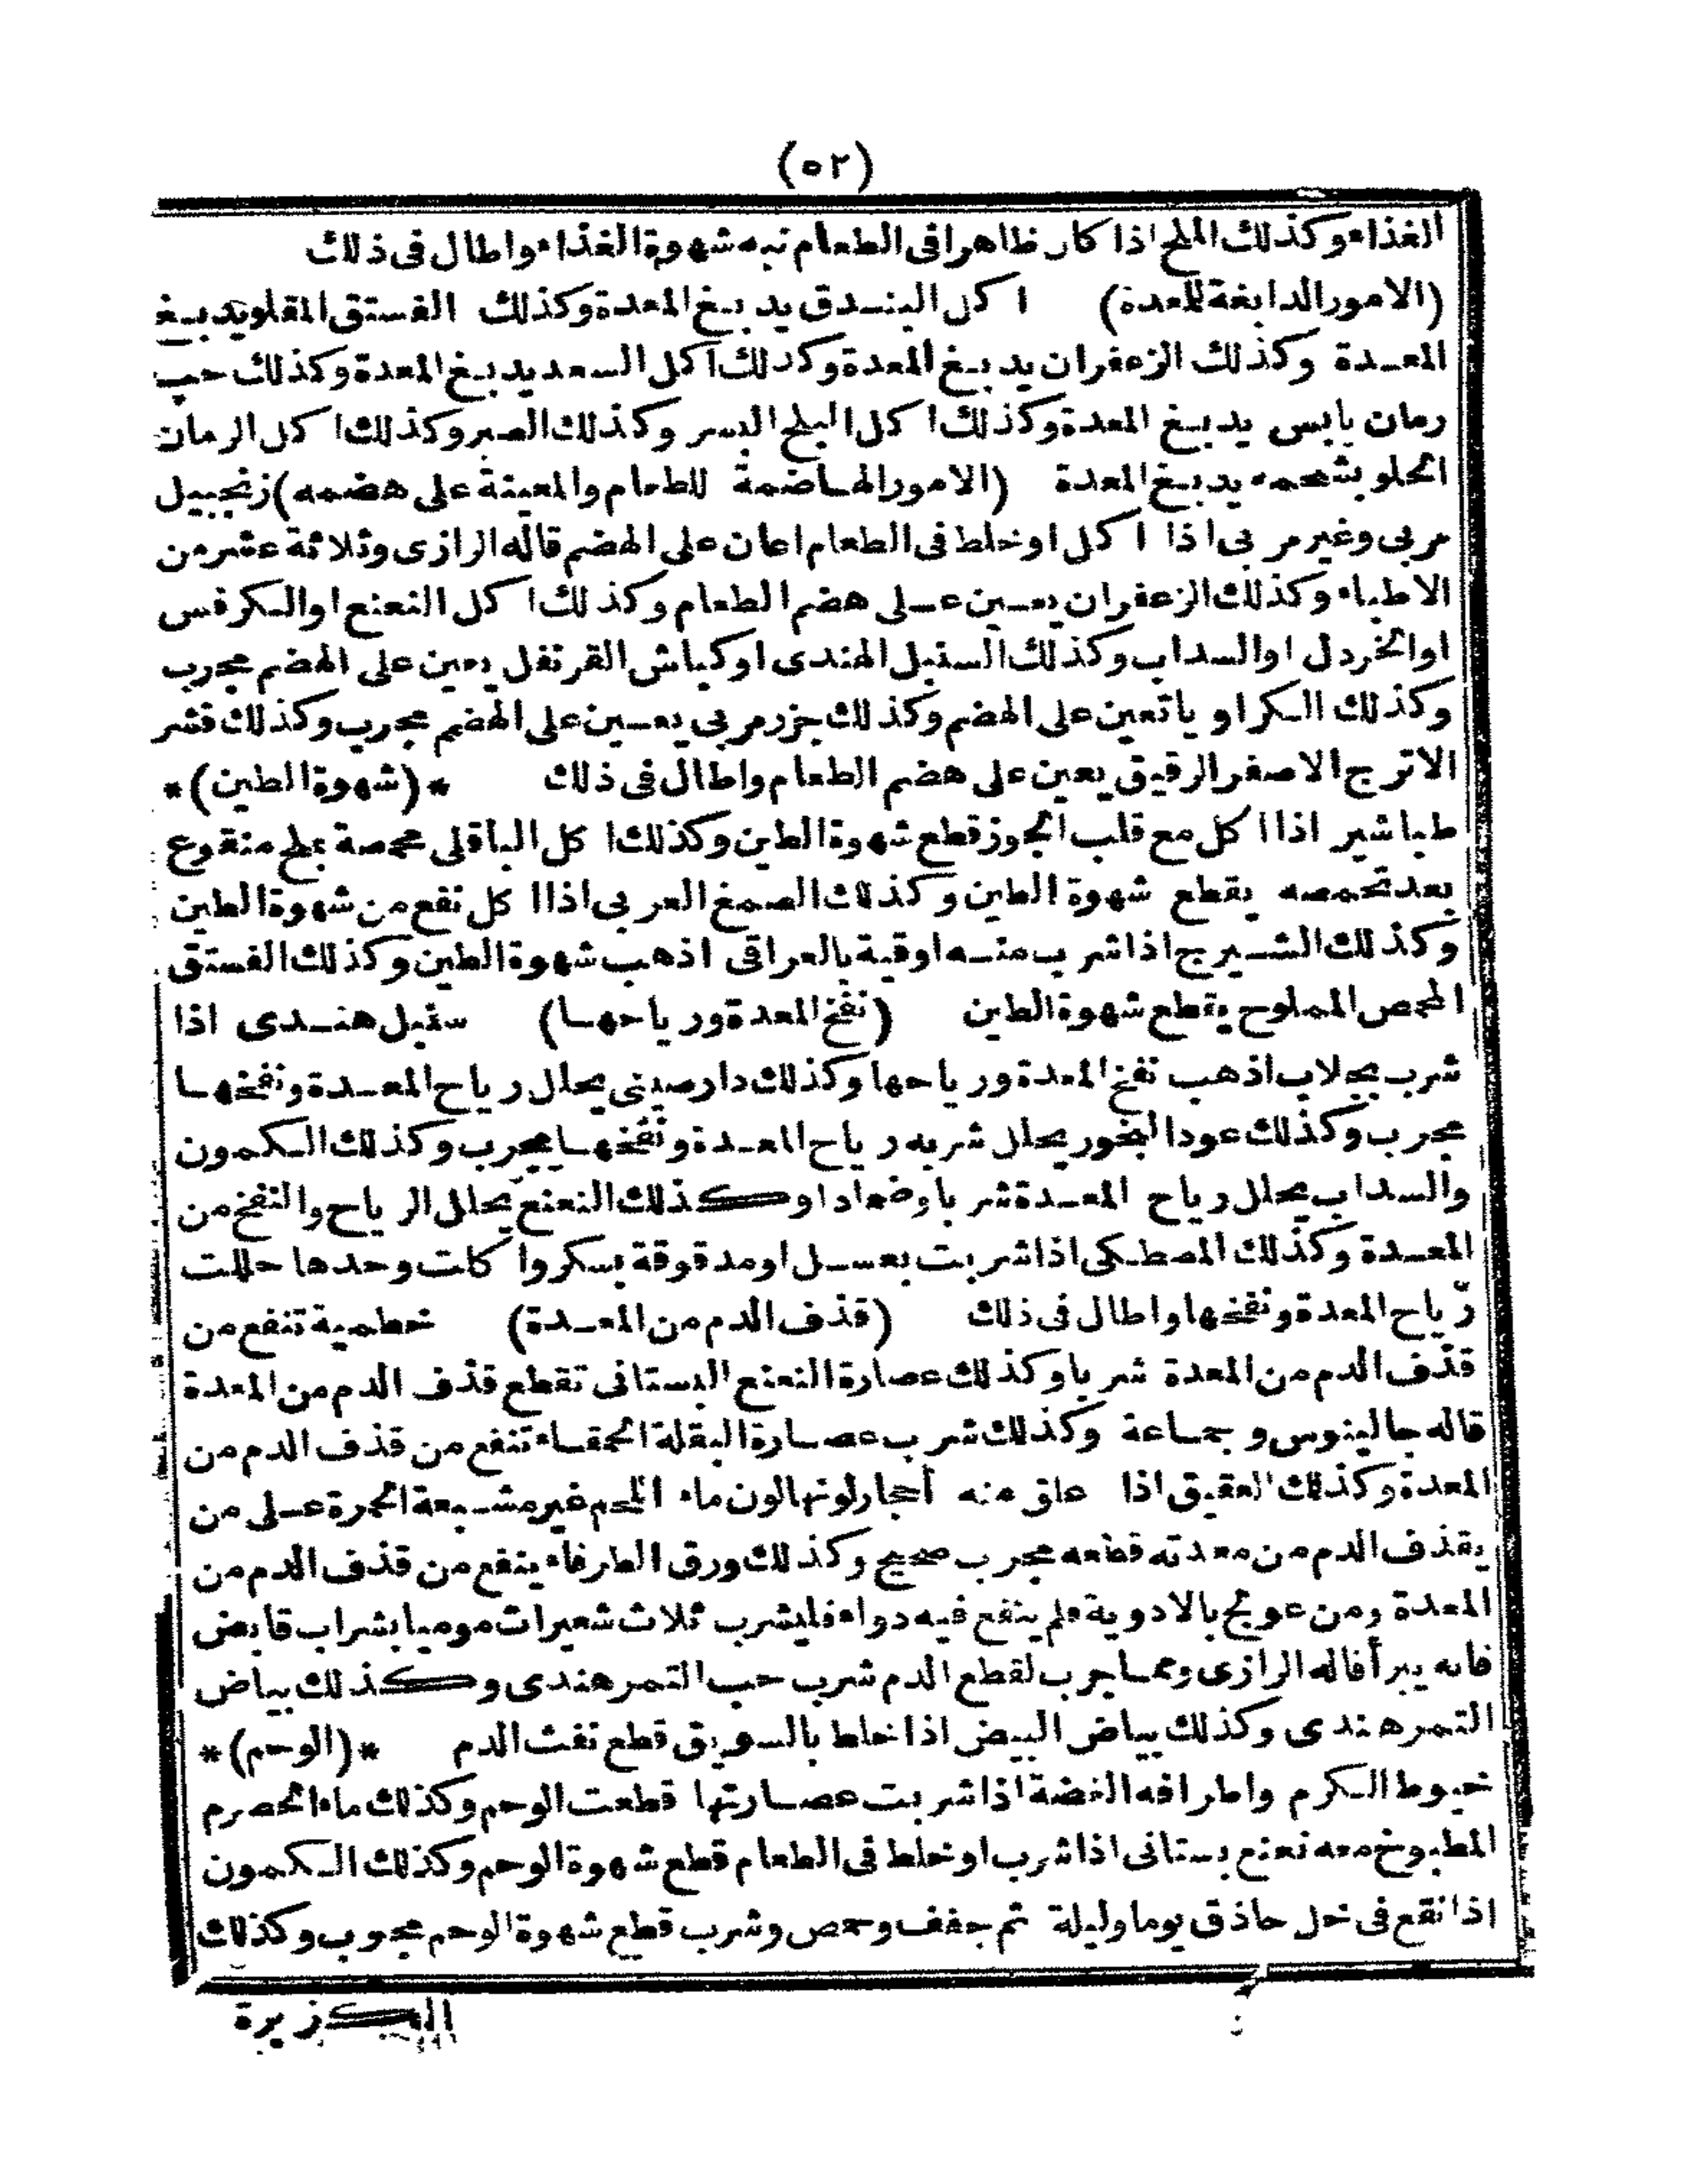 (٥٢)
الغذاء وكذلك الملح اذا كان ظاهرا فى الطعام نبه شهوة الغذاء واطال فى ذلك
(الامور الدابغة للمعدة) اكل البندق يدبغ المعدة وكذلك الفستق المقلو يدبغ
المعدة وكذلك الزعفران يدبغ المعدة وكذلك اكل السعد يدبغ المعدة وكذلك حب
رمان يابس يدبغ المعدة وكذلك اكل البلح البسر وكذلك الصبر وكذلك اكل الرمان
الحلو بشحمه يدبغ المعدة (الامور الهاضمة للطعام والمعينة على هضمه) زنجبيل
مربى وغير مربى اذا اكل او خلط فى الطعام اعان على الهضم قاله الرازى وثلاثة عشر من
الاطباء وكذلك الزعفران يعين على هضم الطعام وكذلك اكل النعنع او الكرفس
او الخردل او السداب وكذلك السنبل الهندى او كباش القرنفل يعين على الهضم مجرب
وكذلك الكراويا تعين على الهضم وكذلك جزر مربى يعين على الهضم مجرب وكذلك قشر
الاترج الاصفر الرقيق يعين على هضم الطعام واطال فى ذلك *(شهوة الطين)*
طباشير اذا اكل مع قلب الجوز قطع شهوة الطين وكذلك اكل الباقلى محمصة بملح منقوع
بعد تحمصه يقطع شهوة الطين وكذلك الصمغ العربى اذا اكل نفع من شهوة الطين
وكذلك الشيرج اذا شرب منه اوقية بالعراقى اذهب شهوة الطين وكذلك الفستق
المحمص المملوح يقطع شهوة الطين (نفخ المعدة ورياحها) سنبل هندى اذا
شرب بجلاب اذهب نفخ المعدة ورياحها وكذلك دارصينى يحلل رياح المعدة ونفخها
مجرب وكذلك عود البخور يحلل شربه رياح المعدة ونفخها مجرب وكذلك الكمون
والسداب يحلل رياح المعدة شربا وضمادا وكذلك النعنع يحلل الرياح والنفخ من
المعدة وكذلك المصطكى اذا شربت بعسل او مدقوقة بسكر واكلت وحدها حللت
رياح المعدة ونفخها واطال فى ذلك (قذف الدم من المعدة) خطمية تنفع من
قذف الدم من المعدة شربا وكذلك عصارة النعنع البستانى تقطع قذف الدم من المعدة
قاله جالينوس وجماعة وكذلك شرب عصارة البقلة الحمقاء تنفع من قذف الدم من
المعدة وكذلك العقيق اذا علق منه أحجار لونها لون ماء اللحم غير مشبعة الحمرة على من
يقذف الدم من معدته قطعه مجرب صحيح وكذلك ورق الطرفاء ينفع من قذف الدم من
المعدة ومن عولج بالادوية فلم ينفع فيه دواء فليشرب ثلاث شعيرات موميا بشراب قابض
فانه يبرأ قاله الرازى ومما جرب لقطع الدم شرب حب التمرهندى وكذلك بياض
التمرهندى وكذلك بياض البيض اذا خلط بالسويق قطع نفث الدم *(الوحم)*
خيوط الكرم واطرافه الغضة اذا شربت عصارتها قطعت الوحم وكذلك ماء الحصرم
المطبوخ معه نعنع بستانى اذا شرب او خلط فى الطعام قطع شهوة الوحم وكذلك الكمون
اذا نقع فى خل حاذق يوما وليلة ثم جفف وحمص وشرب قطع شهوة الوحم مجرب وكذلك
الكزبرة